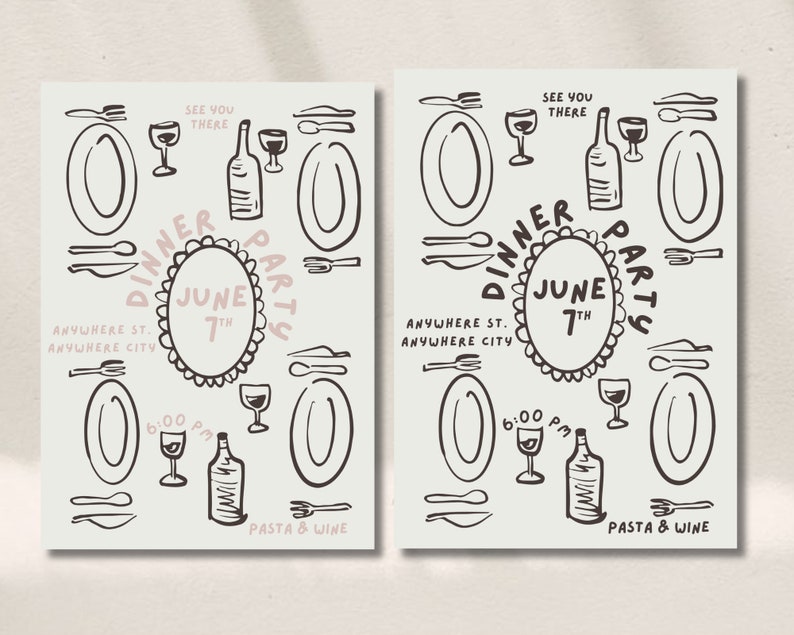 SEE YOU
THERE
DINNER PARTY
JUNE
7TH
ANYWHERE ST.
ANYWHERE CITY
6:00 PM
PASTA & WINE
SEE YOU
THERE
DINNER PARTY
JUNE
7TH
ANYWHERE ST.
ANYWHERE CITY
6:00 PM
PASTA & WINE